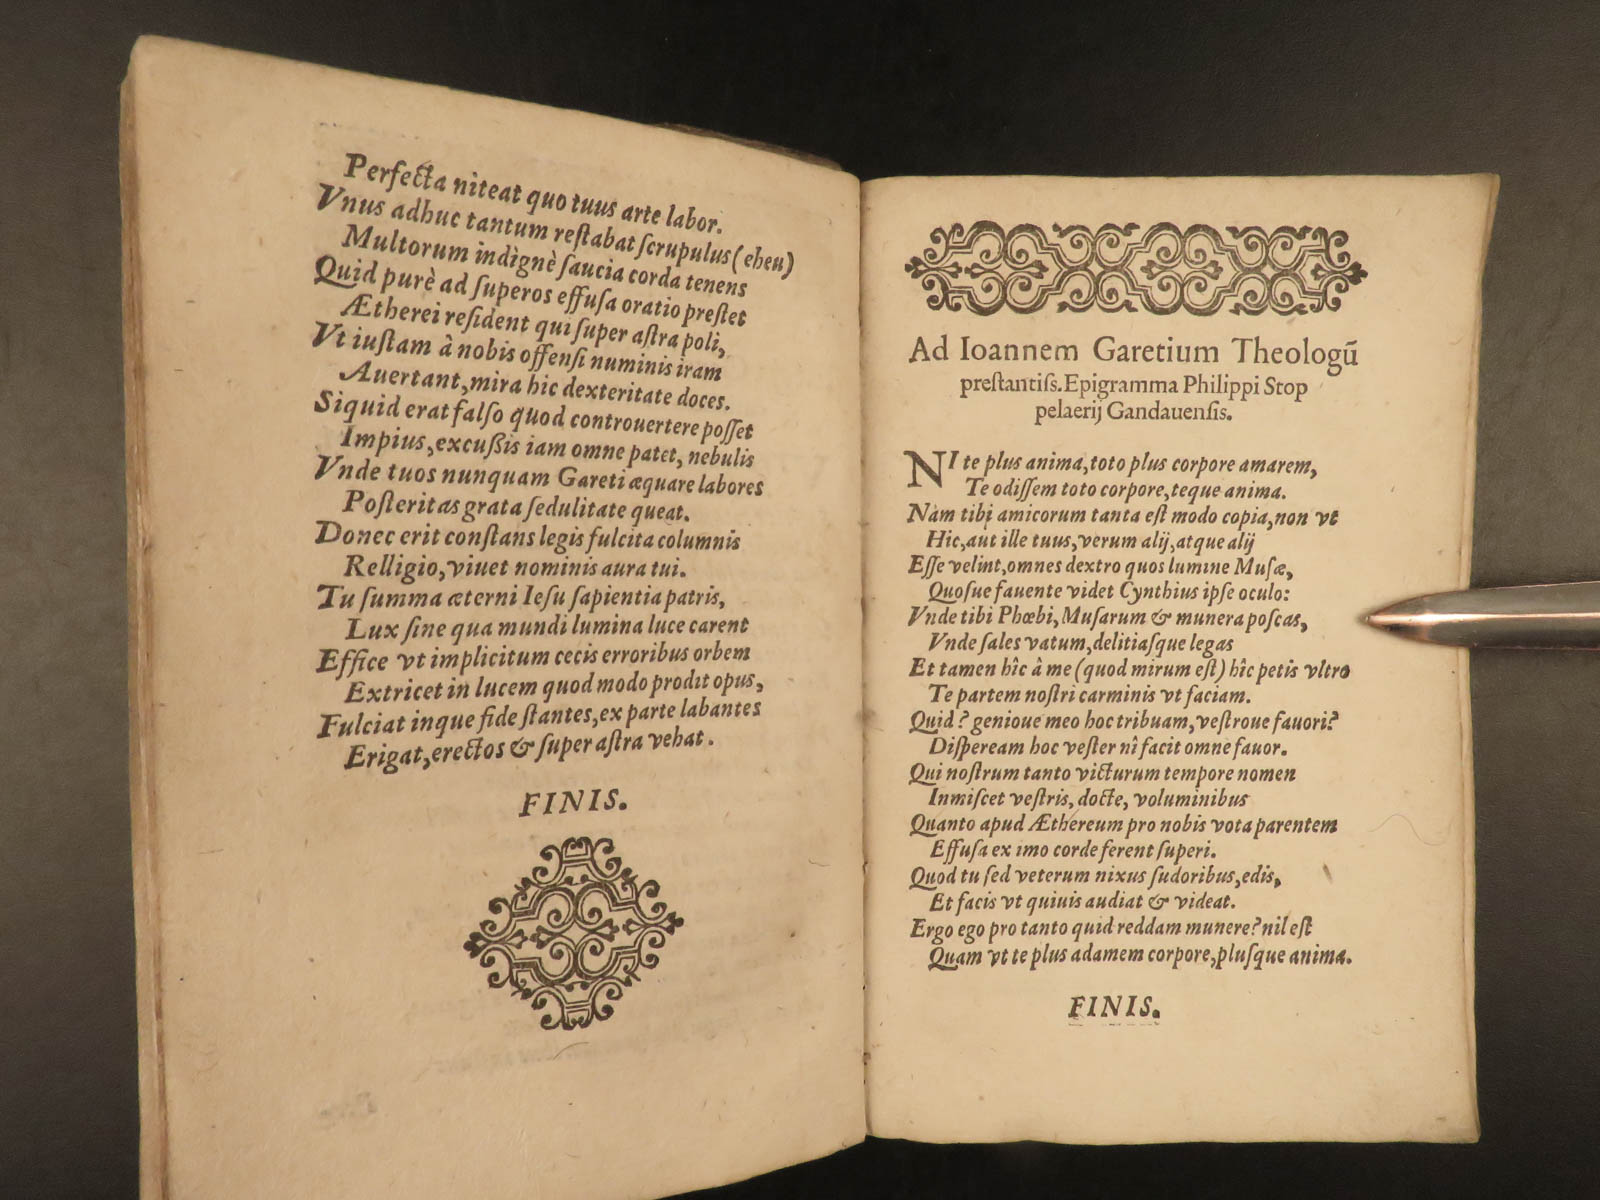 Perfecta niteat quo tuus arte labor.
Vnus adhuc tantum restabat scrupulus (eheu)
Multorum indignè saucia corda tenens
Quid purè ad superos effusa oratio prestet
Ætherei resident qui super astra poli,
Vt iustam à nobis offensi numinis iram
Auertant, mira hic dexteritate doces.
Siquid erat falso quod controuertere posset
Impius, excußis iam omne patet, nebulis
Vnde tuos nunquam Gareti æquare labores
Posteritas grata sedulitate queat.
Donec erit constans legis fulcita columnis
Relligio, viuet nominis aura tui.
Tu summa æterni Iesu sapientia patris,
Lux sine qua mundi lumina luce carent
Effice vt implicitum cecis erroribus orbem
Extricet in lucem quod modo prodit opus,
Fulciat inque fide stantes, ex parte labantes
Erigat, erectos & super astra vehat.
FINIS.
Ad Ioannem Garetium Theologũ
prestantiss. Epigramma Philippi Stop
pelaerij Gandauensis.
NI te plus anima, toto plus corpore amarem,
Te odissem toto corpore, teque anima.
Nam tibi amicorum tanta est modo copia, non vt
Hic, aut ille tuus, verum alij, atque alij
Esse velint, omnes dextro quos lumine Musæ,
Quosue fauente videt Cynthius ipse oculo:
Vnde tibi Phœbi, Musarum & munera poscas,
Vnde sales vatum, delitiasque legas
Et tamen hîc à me (quod mirum est) hîc petis vltro
Te partem nostri carminis vt faciam.
Quid? genioue meo hoc tribuam, vestroue fauori?
Dispeream hoc vester nî facit omne fauor.
Qui nostrum tanto victurum tempore nomen
Inmiscet vestris, docte, voluminibus
Quanto apud Æthereum pro nobis vota parentem
Effusa ex imo corde ferent superi.
Quod tu sed veterum nixus sudoribus, edis,
Et facis vt quiuis audiat & videat.
Ergo ego pro tanto quid reddam munere? nil est
Quam vt te plus adamem corpore, plusque anima.
FINIS.